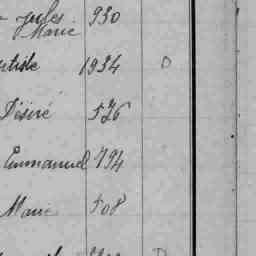 Jules 930
Marie
1934 D
Désiré 526
Emmanuel 794
Marie 508